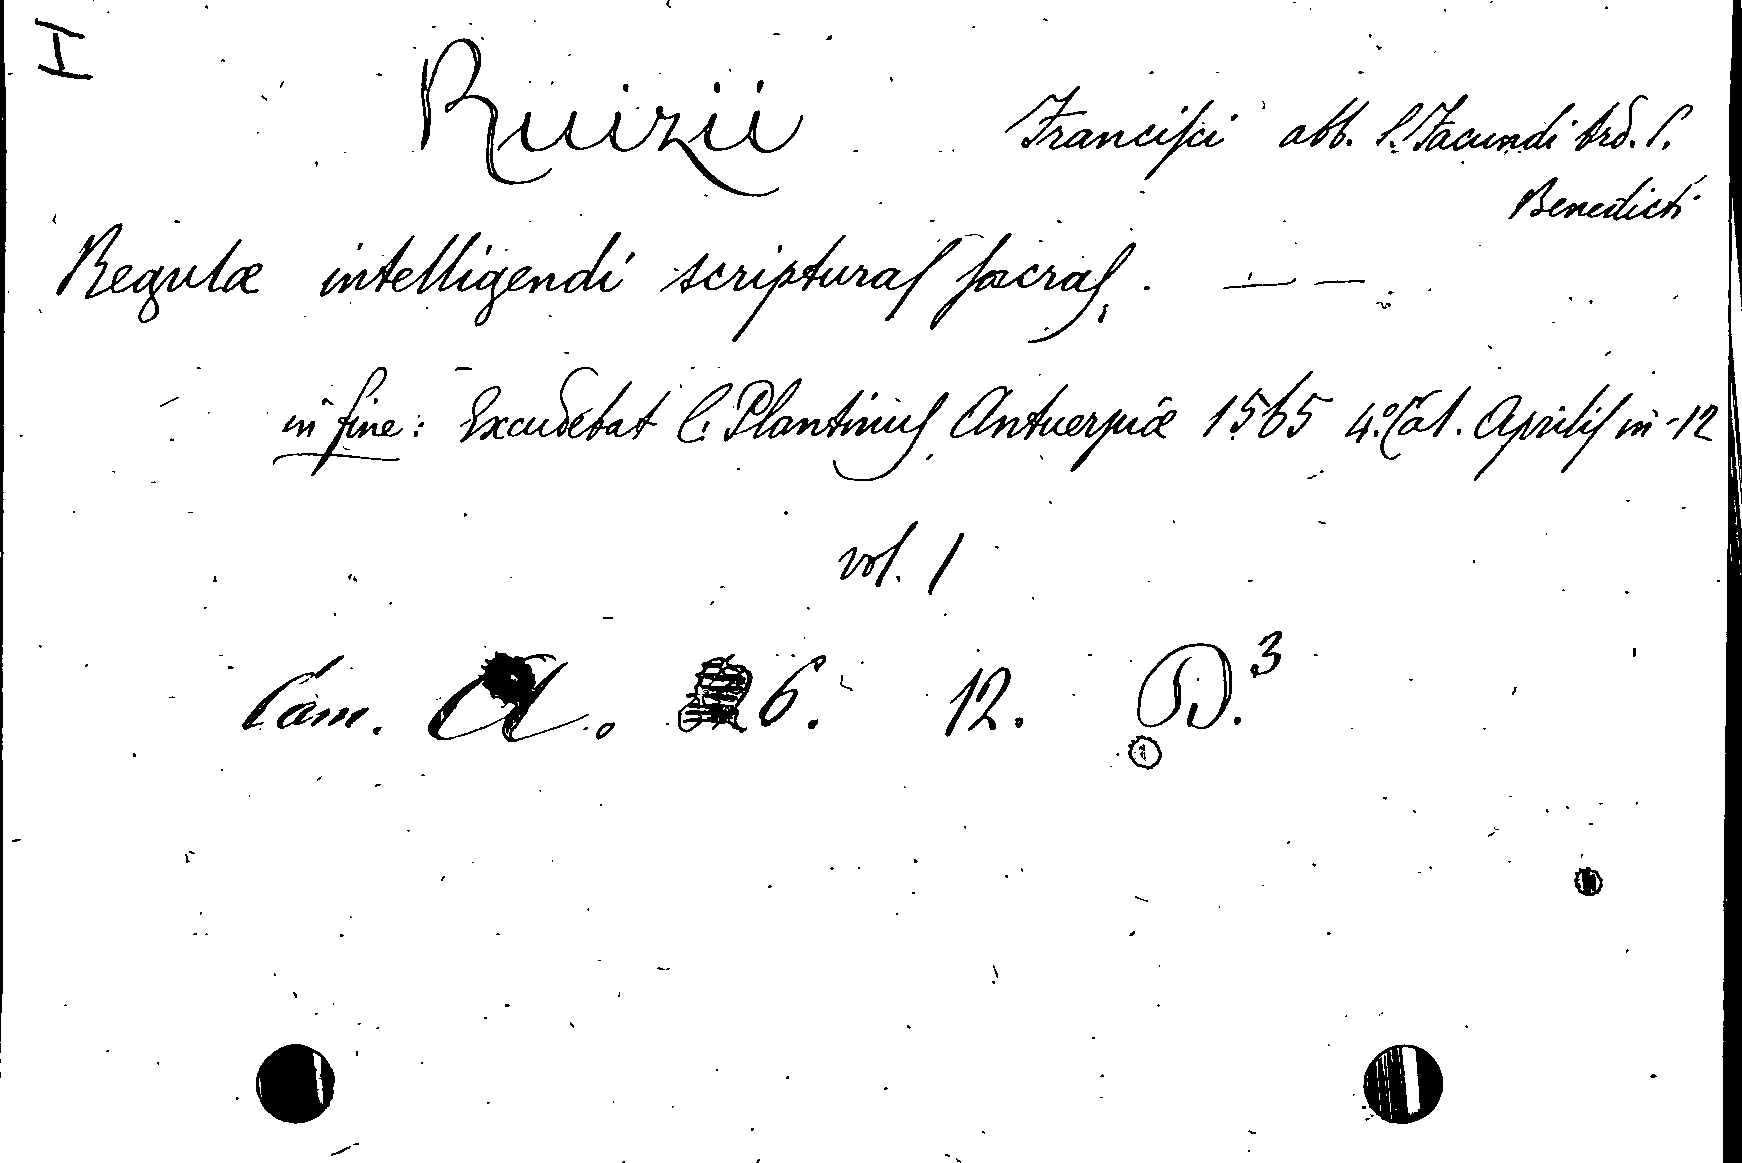 H
Ruizii Francisci abb. S. Facundi Ord. S.
Benedicti
Regulæ intelligendi scripturas sacras. — —
in fine: Excudebat C. Plantinus Antuerpiæ 1565 4.º Cal. Aprilis in-12
vol. 1
Cam. A. 6. 12. D.³